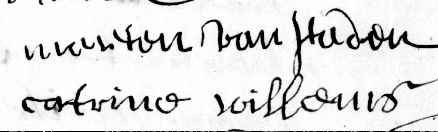 marten van staden
catrine willems